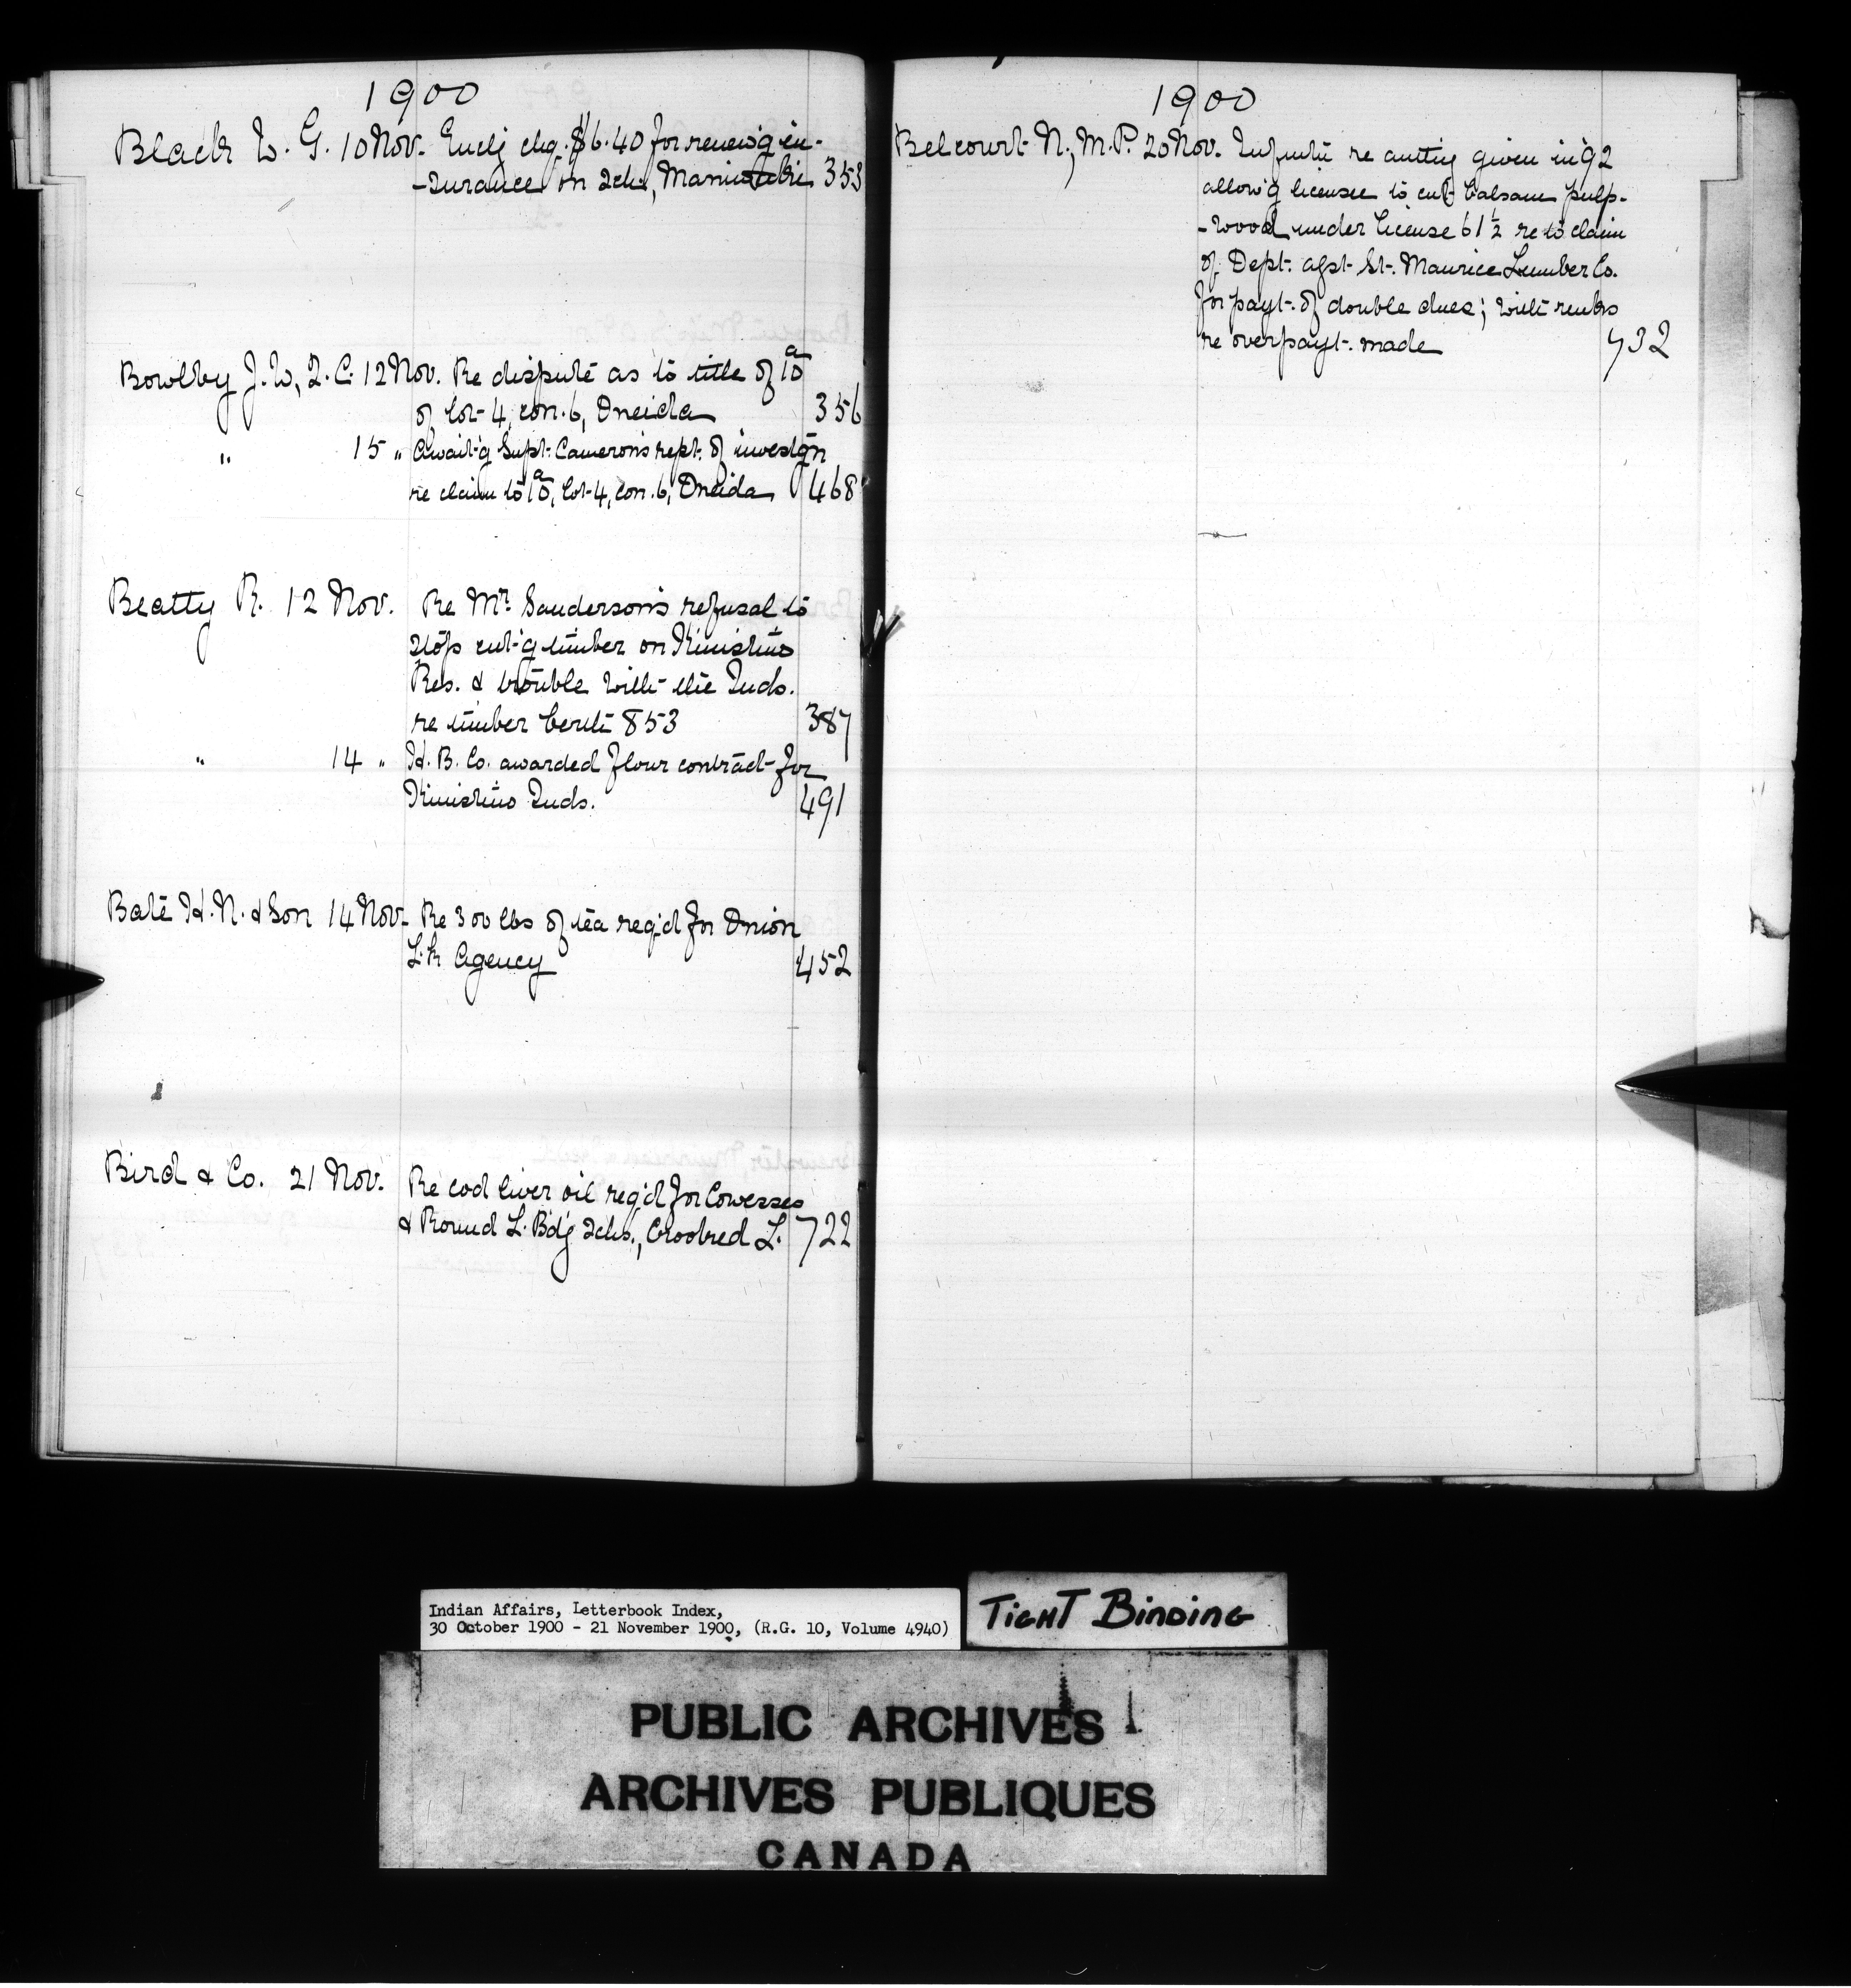 1900
Black W. G. 10 Nov. Encl'g chq. $6.40 for renew'g in-
-surance on sch., Maniwaki 353
Bowlby J. W, Q. C. 12 Nov. Re dispute as to title of 10 a
of lot 4, con. 6, Oneida 356
" 15 " Await'g Supt. Cameron's rept. of investg'n
re claim to 10 a, lot 4, con. 6, Oneida 468
Beatty R. 12 Nov. Re Mr. Sanderson's refusal to
stop cut'g timber on Kinistino
Res. & trouble with the Inds.
re timber berth 853 387
" 14 " H. B. Co. awarded flour contract for
Kinistino Inds. 491
Bate H. N. & Son 14 Nov. Re 300 lbs of tea req'd for Onion
L.k Agency 452
Bird & Co. 21 Nov. Re cod liver oil req'd for Cowesses
& Round L. Bdg Schs., Crooked L. 722
1900
Belcourt N., M. P. 20 Nov. re given in '92
allow'g licensee to cut balsam pulp-
-wood under license 61 1/2 re to claim
of Dept. agst. St. Maurice Lumber Co.
for payt. of double dues; with
re overpayt. made 732
Indian Affairs, Letterbook Index,
30 October 1900 - 21 November 1900, (R.G. 10, Volume 4940)
TIGHT BINDING
PUBLIC ARCHIVES
ARCHIVES PUBLIQUES
CANADA